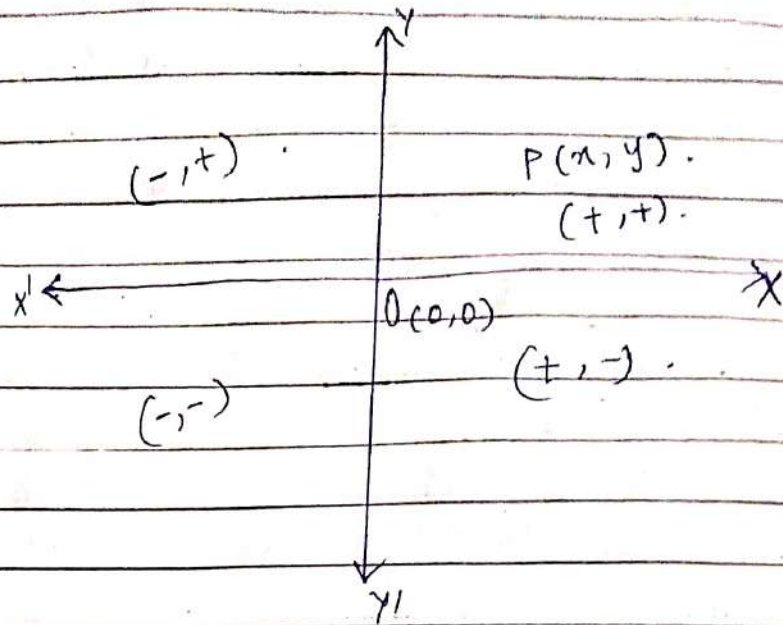 Y
(-,+) .
P(x, y).
(+,+).
X'
X
O(0,0)
(+,-) .
(-,-)
Y'